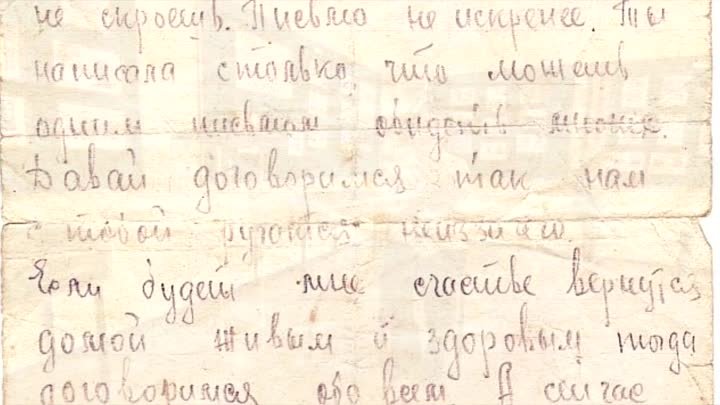 не скроешь. Письмо не искренее. Ты
написала столько, что можешь
одним письмом обидеть многих.
Давай договоримся так нам
с тобой ругатся неззачем.
Если будет мне счастье вернутся
домой живым и здоровым тогда
договоримся обо всем А сейчас